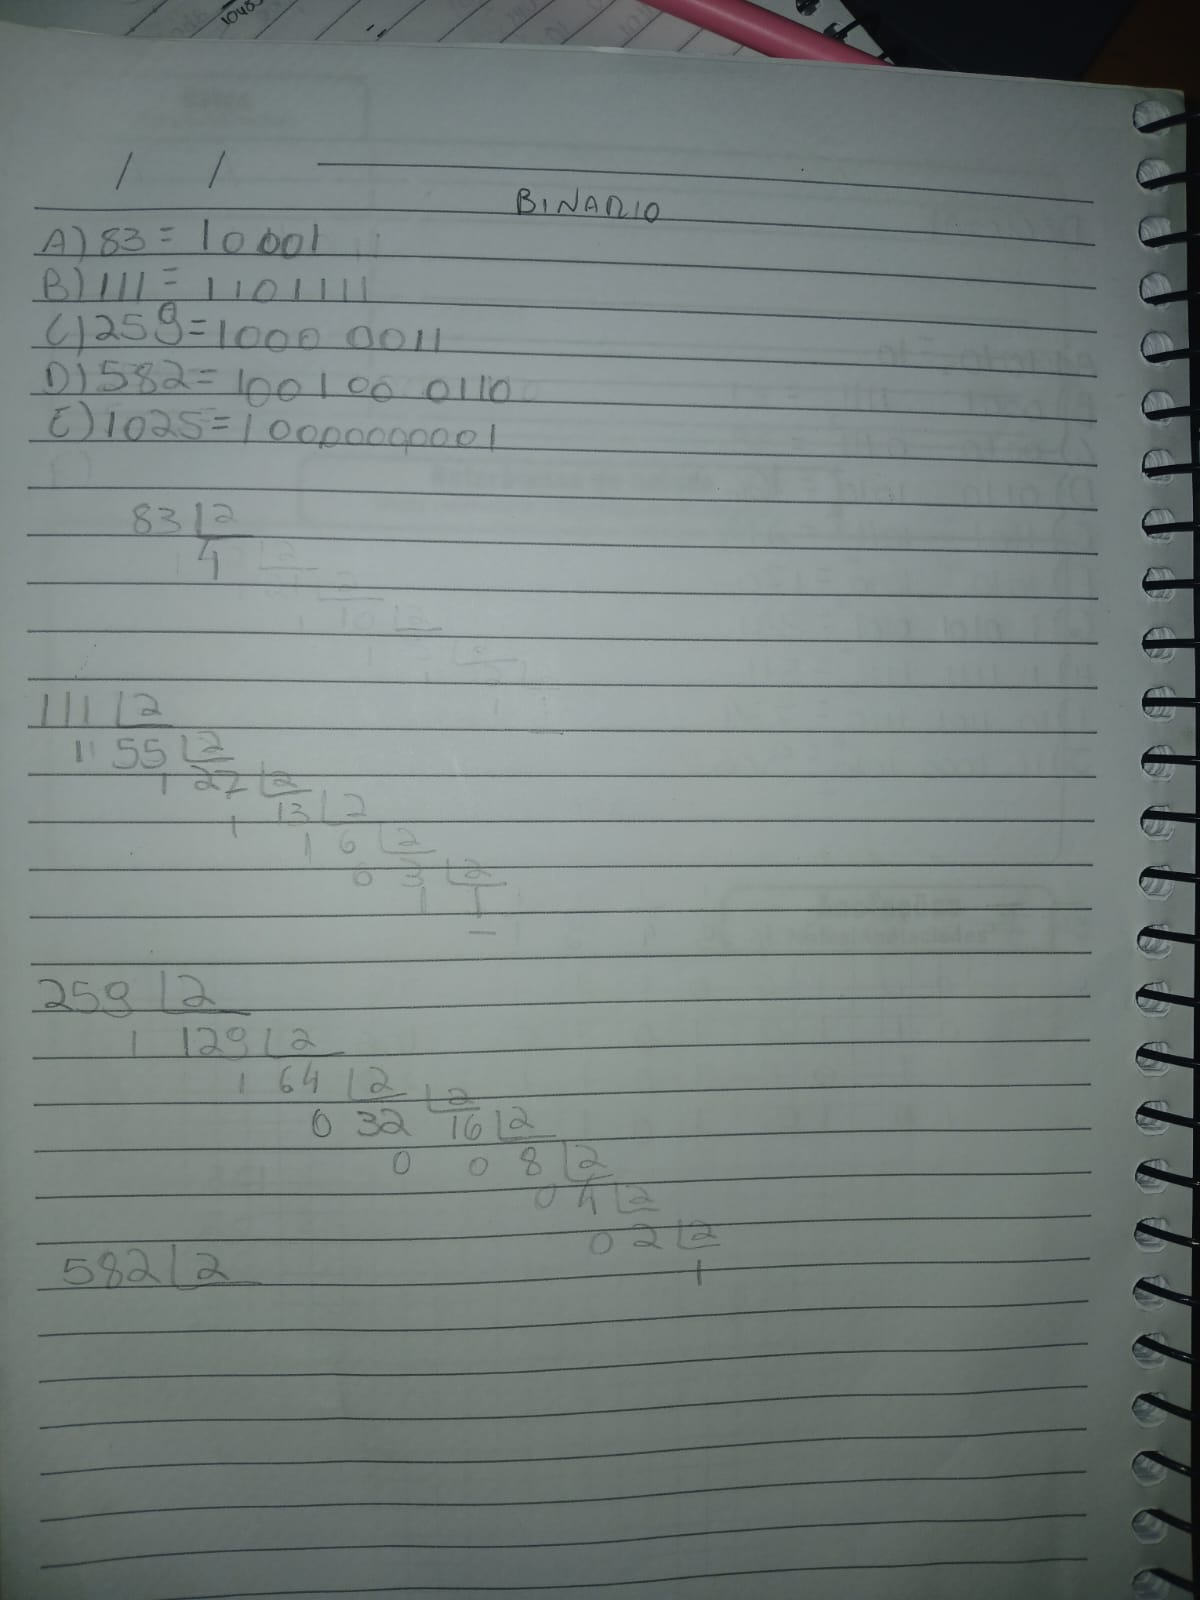 / /
BINARIO
A) 83 = 10001
B) 111 = 1101111
C) 259 = 1000 0011
D) 582 = 100100 0110
E) 1025 = 10000000001
83 2
4
111 2
1 55 2
1 27 2
1 13 2
1 6 2
0 3 2
1 1
259 2
1 129 2
1 64 2
0 32 2
0 16 2
0 8 2
0 4 2
0 2 2
1
582 2